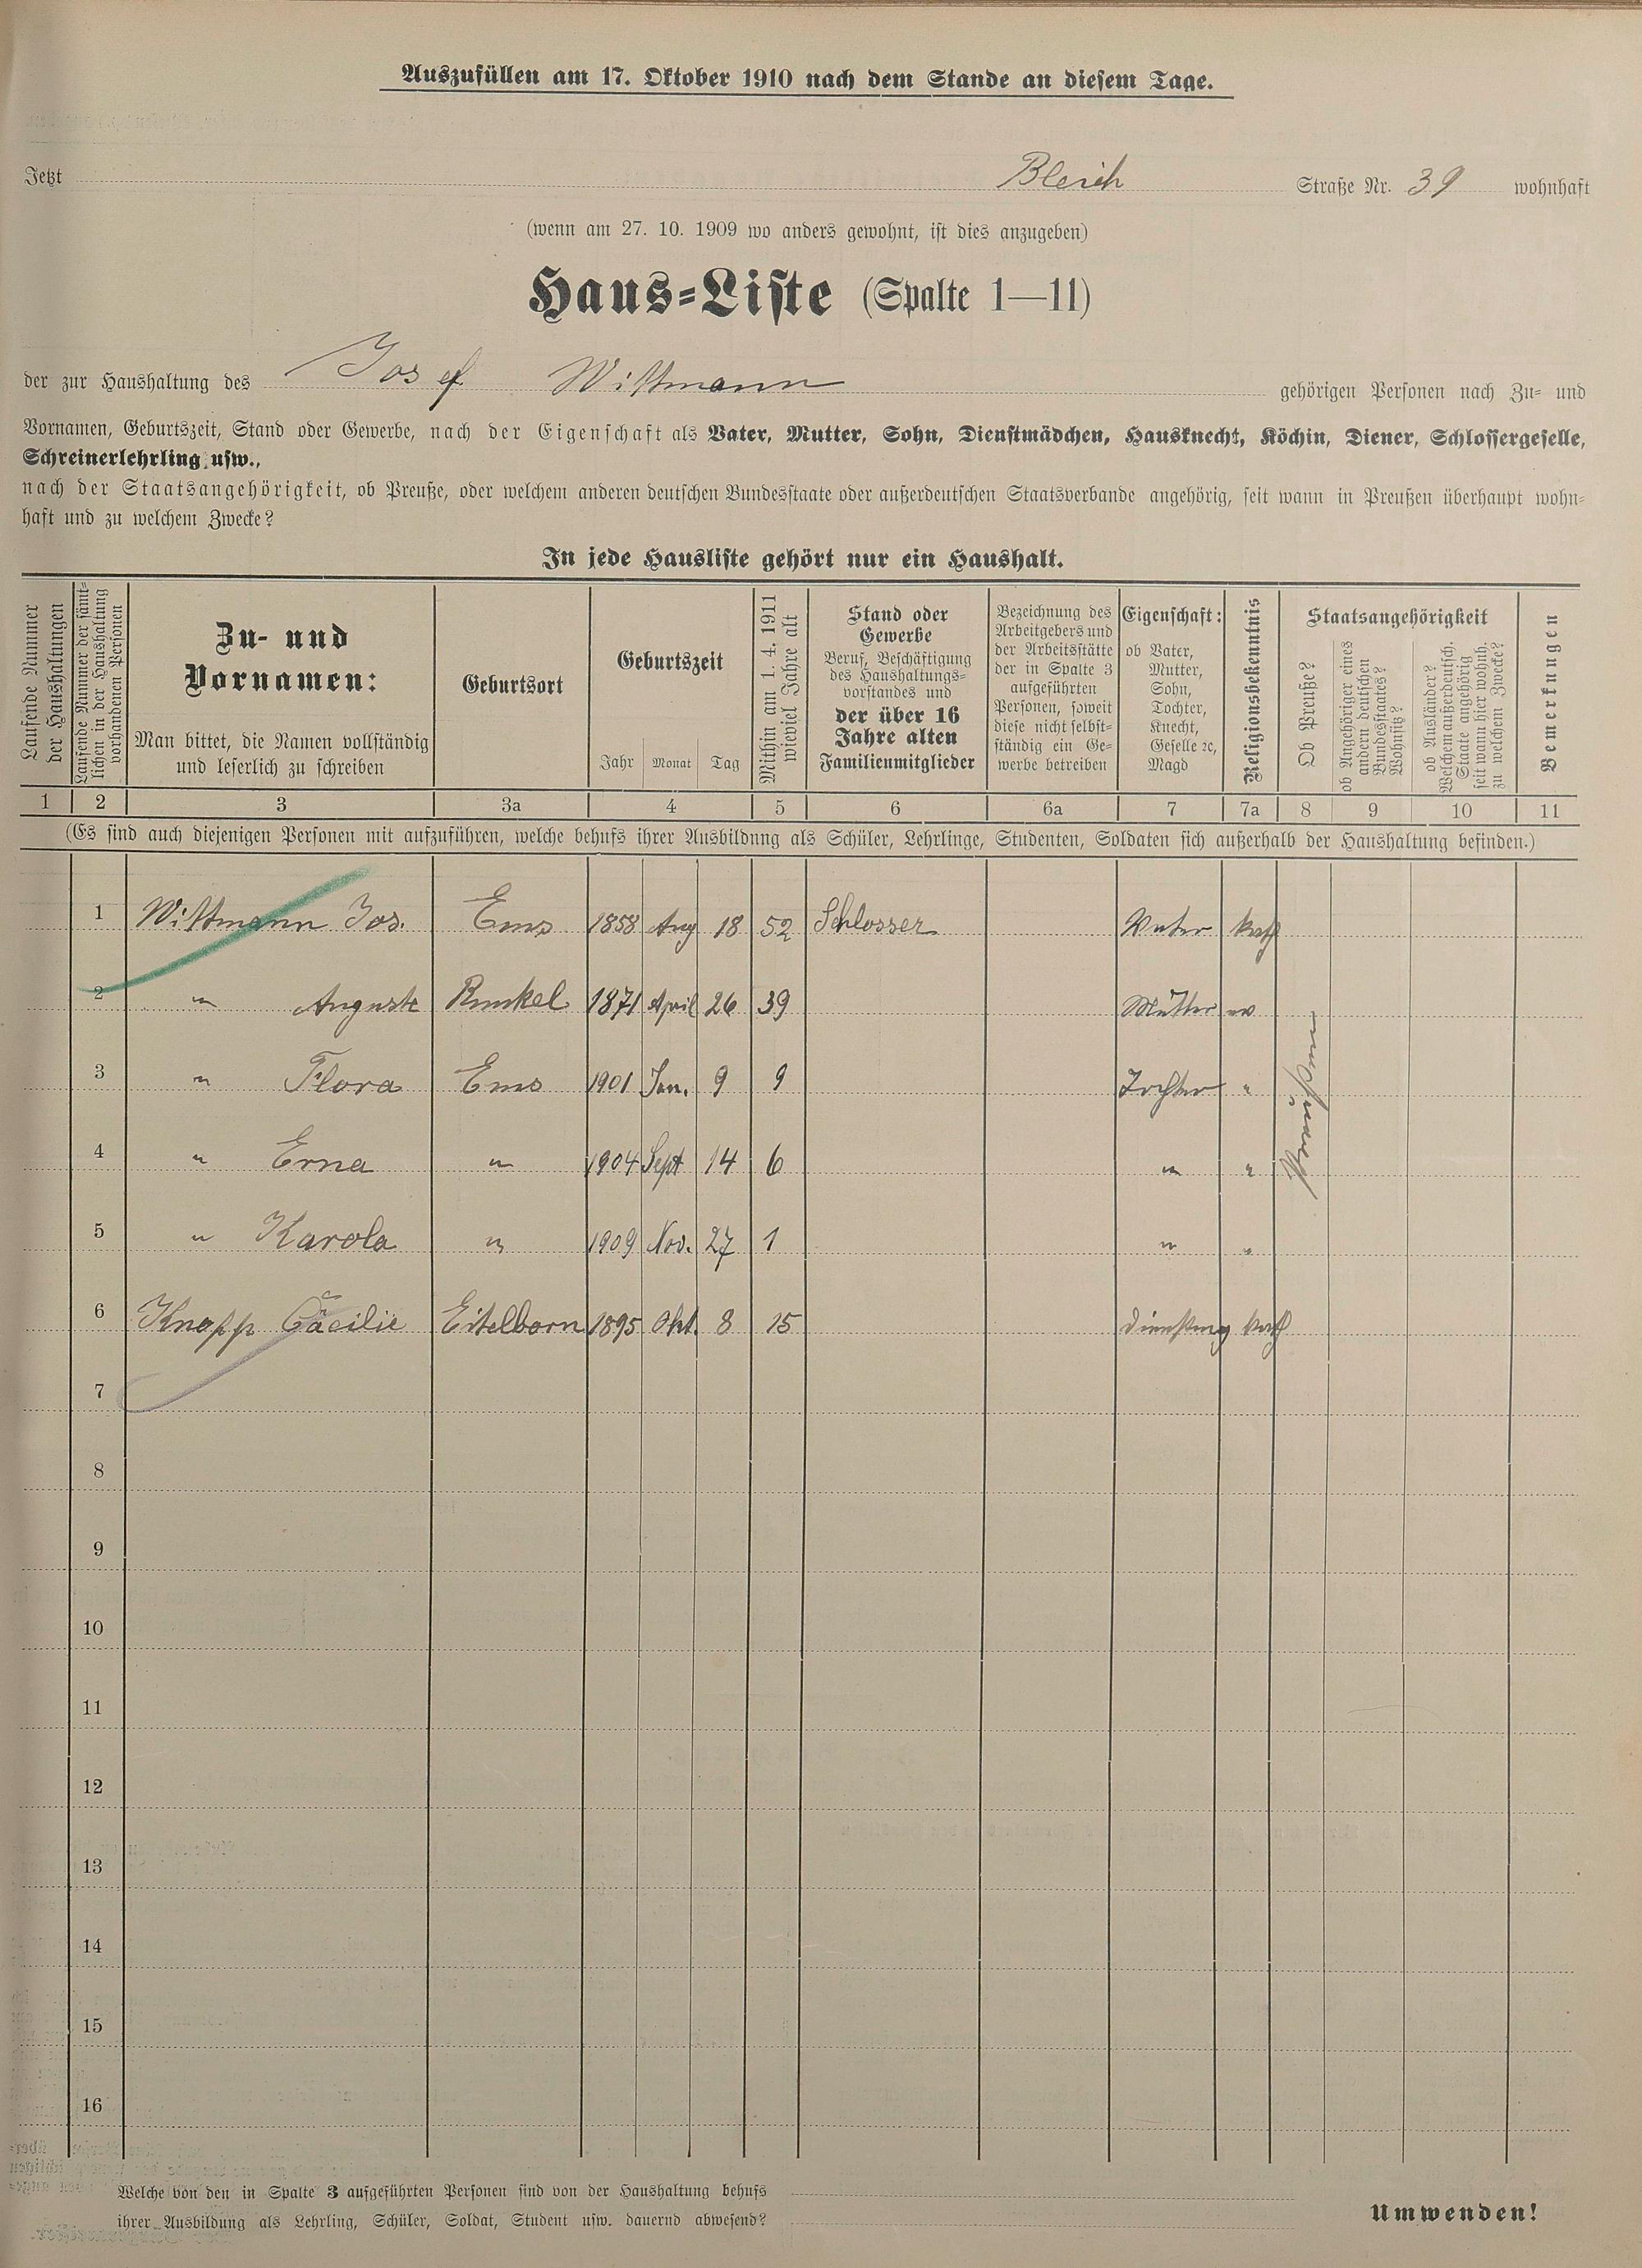 Auszufüllen am 17. Oktober 1910 nach dem Stande an diesem Tage.
Jetzt Bleich Straße Nr. 39 wohnhaft
(wenn am 27. 10. 1909 wo anders gewohnt, ist dies anzugeben)
Haus-Liste (Spalte 1—11)
der zur Haushaltung des Josef Wittmann gehörigen Personen nach Zu- und
Vornamen, Geburtszeit, Stand oder Gewerbe, nach der Eigenschaft als Vater, Mutter, Sohn, Dienstmädchen, Hausknecht, Köchin, Diener, Schlossergeselle,
Schreinerlehrling usw.,
nach der Staatsangehörigkeit, ob Preuße, oder welchem anderen deutschen Bundesstaate oder außerdeutschen Staatsverbande angehörig, seit wann in Preußen überhaupt wohn-
haft und zu welchem Zwecke?
In jede Hausliste gehört nur ein Haushalt.
Laufende Nummer
der Haushaltungen
Laufende Nummer der sämt-
lichen in der Haushaltung
vorhandenen Personen
Zu- und
Vornamen:
Man bittet, die Namen vollständig
und leserlich zu schreiben
Geburtsort
Geburtszeit
Jahr Monat Tag
Mithin am 1. 4. 1911
wieviel Jahre alt
Stand oder
Gewerbe
Beruf, Beschäftigung
des Haushaltungs-
vorstandes und
der über 16
Jahre alten
Familienmitglieder
Bezeichnung des
Arbeitgebers und
der Arbeitsstätte
der in Spalte 3
aufgeführten
Personen, soweit
diese nicht selbst-
ständig ein Ge-
werbe betreiben
Eigenschaft:
ob Vater,
Mutter,
Sohn,
Tochter,
Knecht,
Geselle ec,
Magd
Religionsbekenntnis
Staatsangehörigkeit
Ob Preuße?
ob Angehöriger eines
andern deutschen
Bundesstaates?
Wohnsitz?
ob Ausländer?
Welchem außerdeutsch.
Staate angehörig
seit wann hier wohnh.
zu welchem Zwecke?
Bemerkungen
1 2 3 3a 4 5 6 6a 7 7a 8 9 10 11
(Es sind auch diejenigen Personen mit aufzuführen, welche behufs ihrer Ausbildung als Schüler, Lehrlinge, Studenten, Soldaten sich außerhalb der Haushaltung befinden.)
1 Wittmann Jos. Ems 1858 Aug 18 52 Schlosser Vater kath
2 " Auguste Runkel 1871 April 26 39 Mutter ev
3 " Flora Ems 1901 Jan. 9 9 Tochter "
4 " Erna " 1904 Sept 14 6 " "
5 " Karola " 1909 Nov. 27 1 " "
6 Knopp Cäcilie Eitelborn 1895 Okt. 8 15 Dienstmg kath
7
8
9
10
11
12
13
14
15
16
Welche von den in Spalte 3 aufgeführten Personen sind von der Haushaltung behufs
ihrer Ausbildung als Lehrling, Schüler, Soldat, Student usw. dauernd abwesend?
Umwenden!